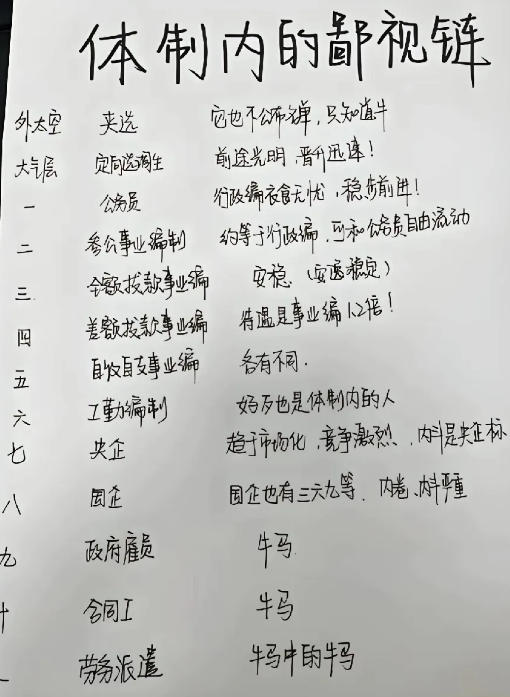 体制内的鄙视链
外太空 夹选 它也不公布名单,只知道牛
大气层 定向选调生 前途光明,晋升迅速!
一 公务员 行政编衣食无忧,稳步前进!
二 参公事业编制 约等于行政编,可和公务员自由流动
三 全额拨款事业编 安稳(安逸稳定)
四 差额拨款事业编 待遇是事业编1.2倍!
五 自收自支事业编 各有不同.
六 工勤编制 好歹也是体制内的人
七 央企 趋于市场化,竞争激烈,内斗是央企标
八 国企 国企也有三六九等.内卷、内斗严重
九 政府雇员 牛马
十 合同工 牛马
一 劳务派遣 牛马中的牛马